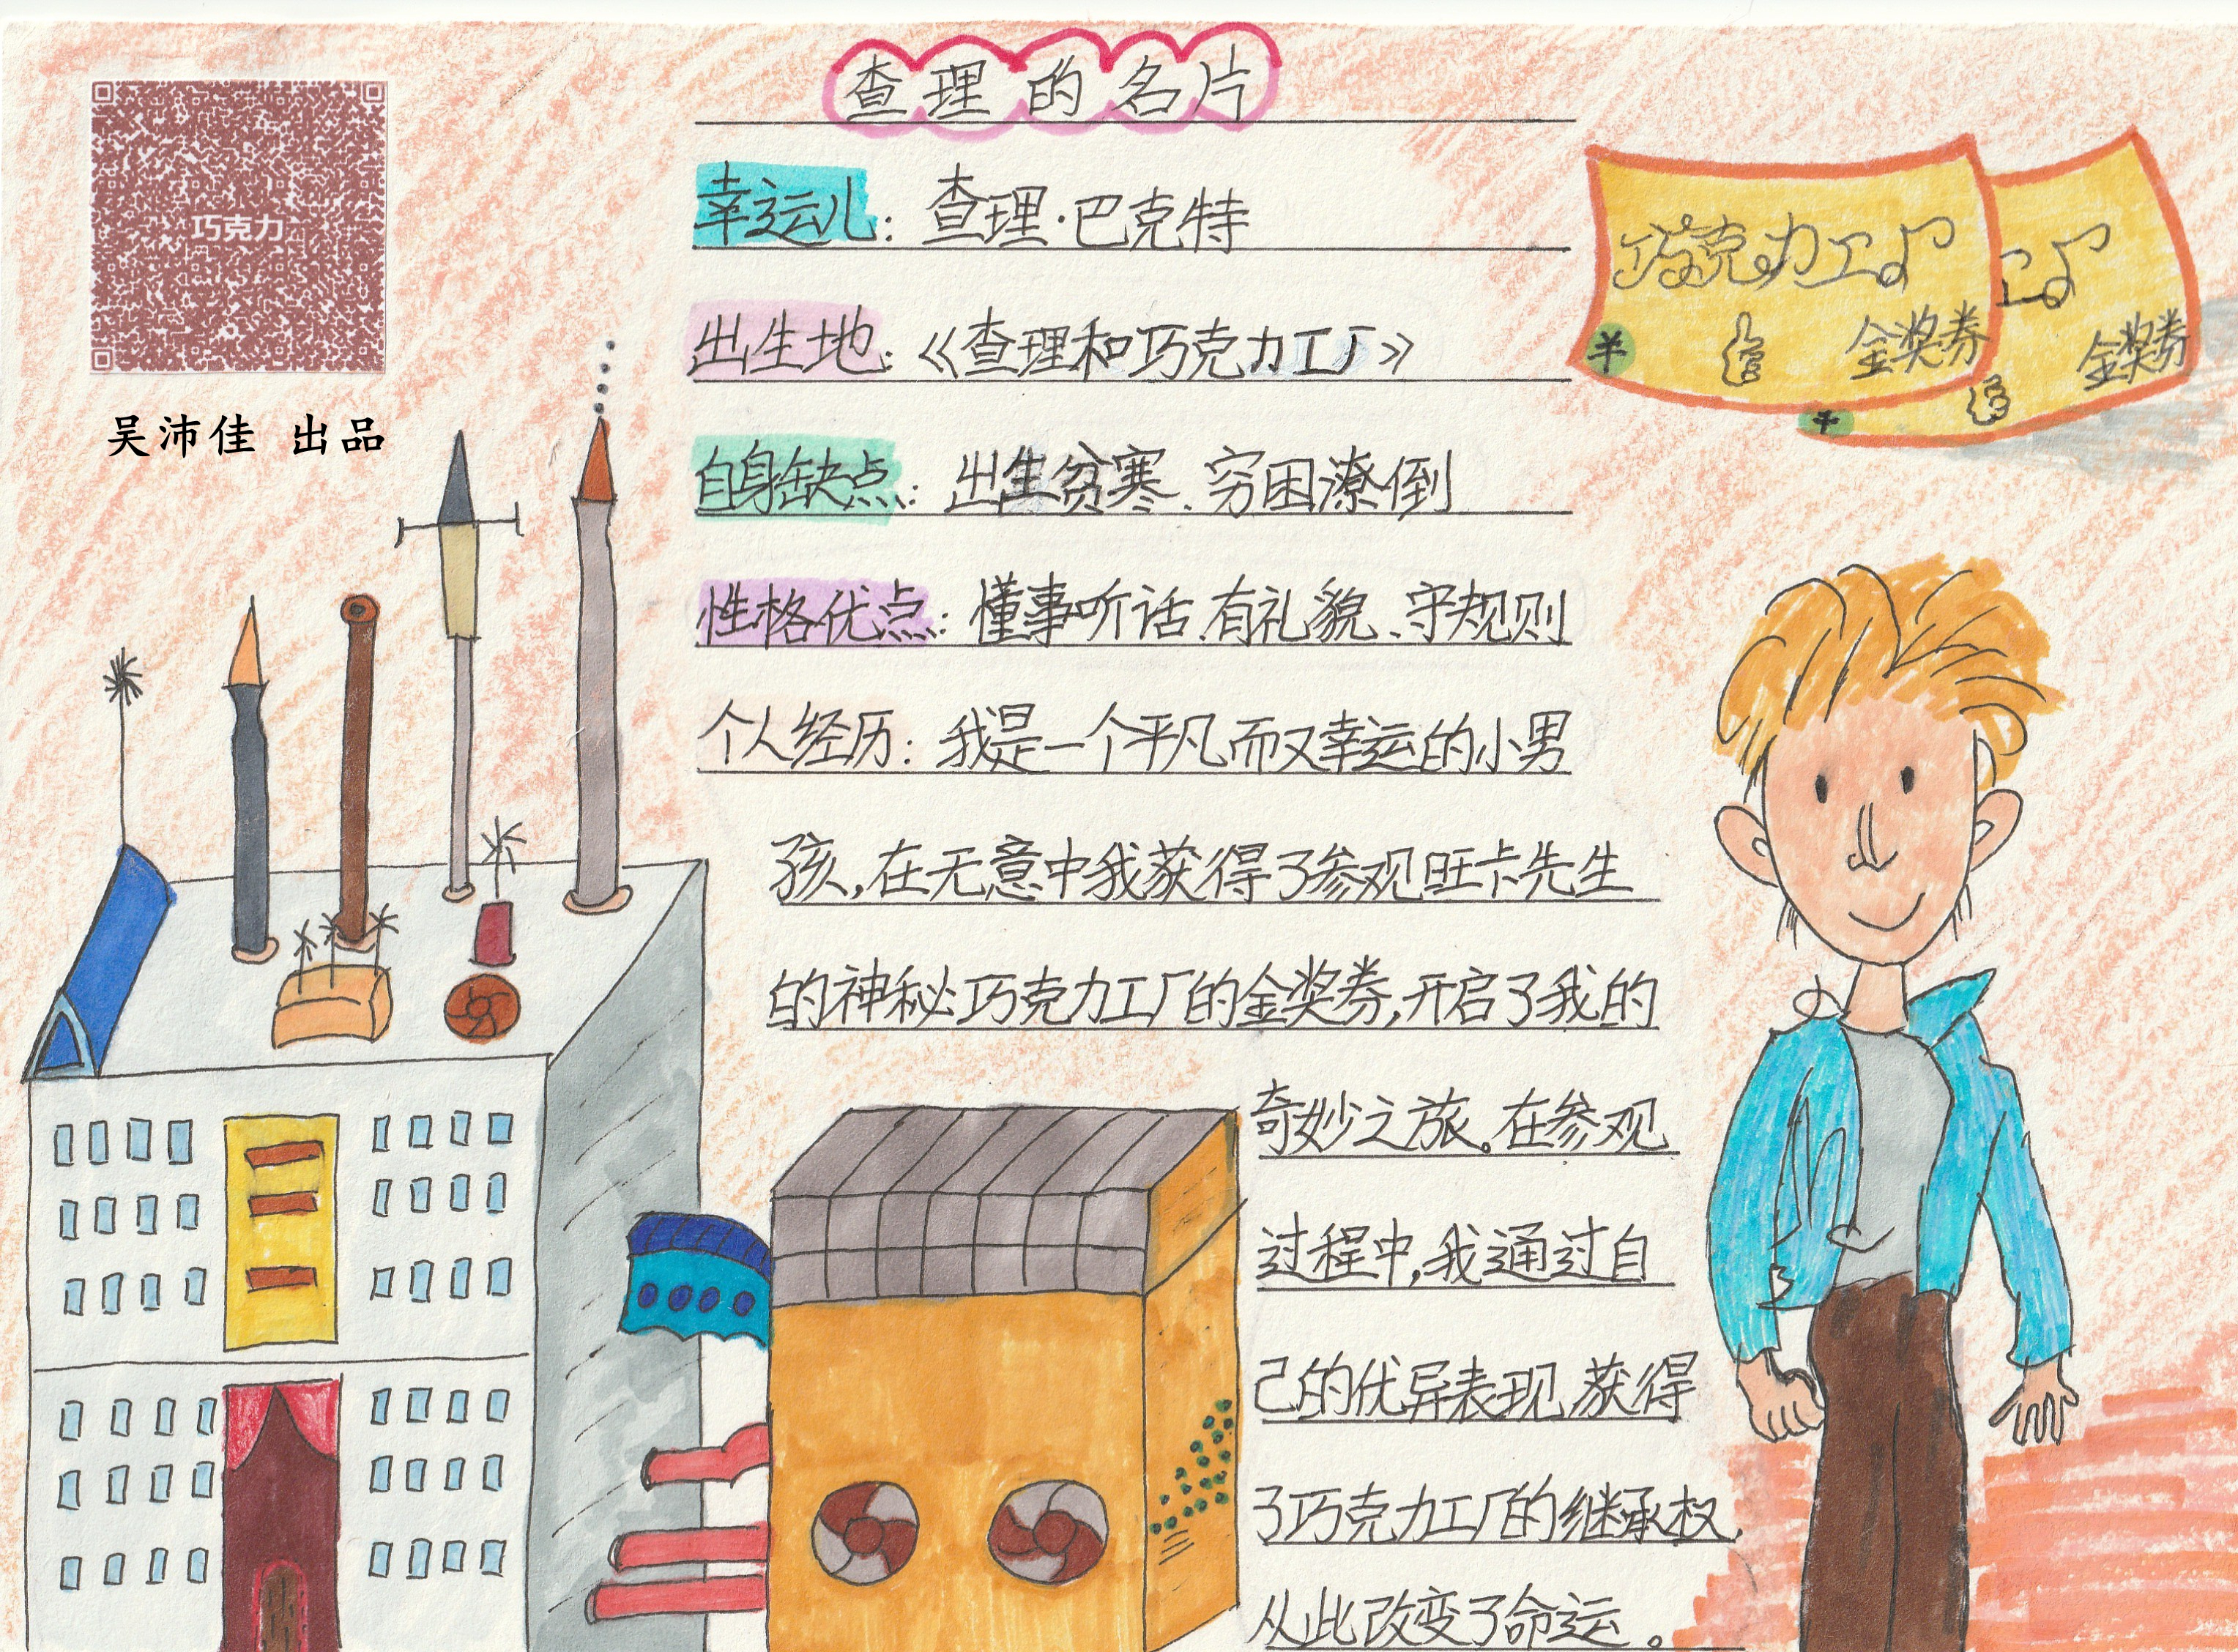 查理的名片
巧克力
吴沛佳 出品
幸运儿：查理·巴克特
出生地：《查理和巧克力工厂》
自身缺点：出生贫寒、穷困潦倒
性格优点：懂事听话、有礼貌、守规则
个人经历：我是一个平凡而又幸运的小男
孩,在无意中我获得了参观旺卡先生
的神秘巧克力工厂的金奖券,开启了我的
奇妙之旅。在参观
过程中,我通过自
己的优异表现,获得
了巧克力工厂的继承权,
从此改变了命运。
巧克力工厂
羊
金奖券
工厂
金奖券